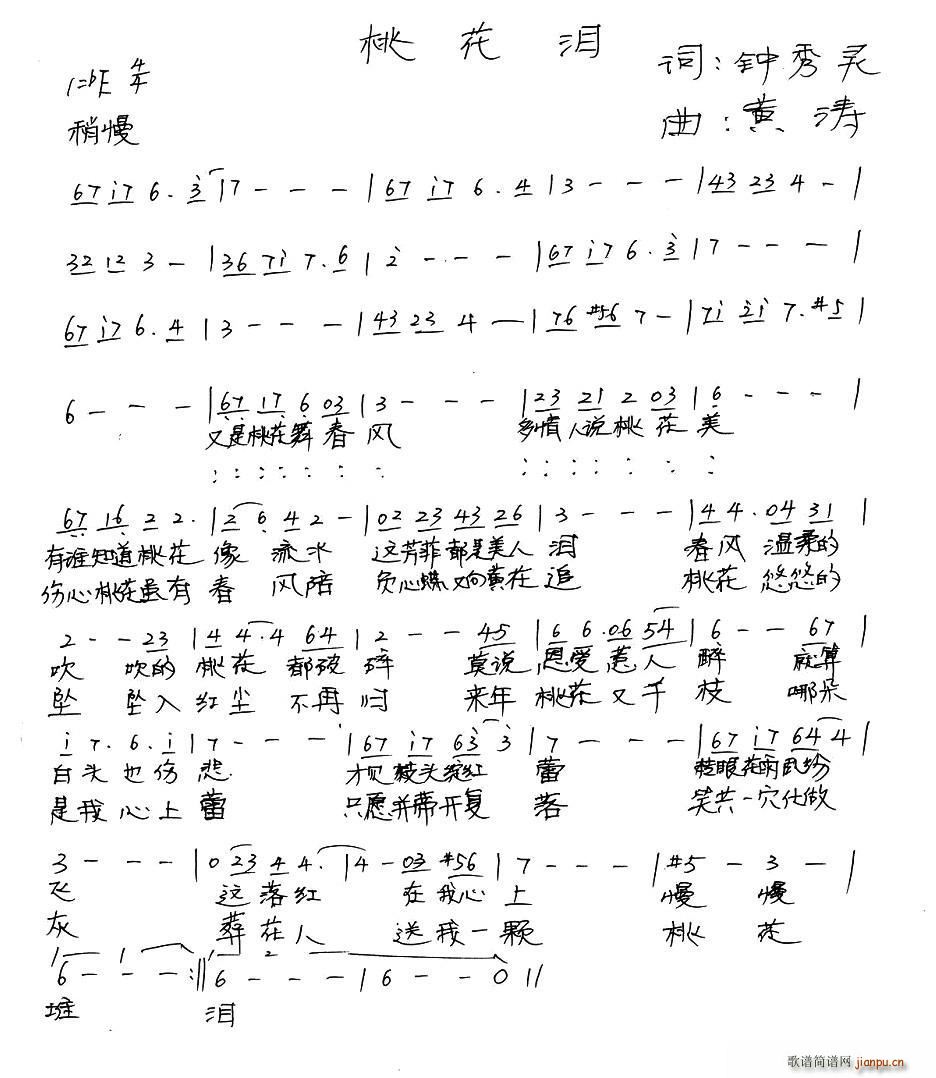 桃花泪
1=bE 4/4
词：钟秀灵
稍慢
曲：黄涛
67 i7 6. 3 | 7 - - - | 67 i7 6. 4 | 3 - - - | 43 23 4 - |
32 12 3 - | 36 7i 7. 6 | 2 - - - | 67 i7 6. 3 | 7 - - - |
67 i7 6. 4 | 3 - - - | 43 23 4 - | 76 #56 7 - | 7i 2i 7. #5 |
6 - - - | 67 17 6 03 | 3 - - - | 23 21 2 03 | 6 - - - |
又是桃花舞春风 多情人说桃花美
: : : : : : : : : : : : : :
67 16 2 2. | 2 6 4 2 - | 02 23 43 26 | 3 - - - | 4 4. 04 31 |
有谁知道桃花像流水 这芳菲都是美人泪 春风温柔的
伤心桃花虽有春风陪 负心蝶又向黄花追 桃花悠悠的
2 - - 23 | 4 4. 4 64 | 2 - - 45 | 6 6. 06 54 | 6 - - 67 |
吹 吹的桃花都破碎 莫说恩爱惹人醉 就算
坠 坠入红尘不再归 来年桃花又千枝 哪朵
i 7. 6. i | 7 - - - | 67 i7 63 3 | 7 - - - | 67 i7 64 4 |
白头也伤悲 才见枝头绽红蕾
是我心上蕾 只愿并蒂开复落 笑共一穴化做
3 - - - | 0 23 4 4. | 4 - 03 #56 | 7 - - - | #5 - 3 - |
飞 这落红 在我心上 慢 慢
灰 葬花人 送我一颗 桃 花
1 1 1 2
6 - - - :|| 6 - - - | 6 - - 0 ||
堆 泪
歌谱简谱网 jianpu.cn